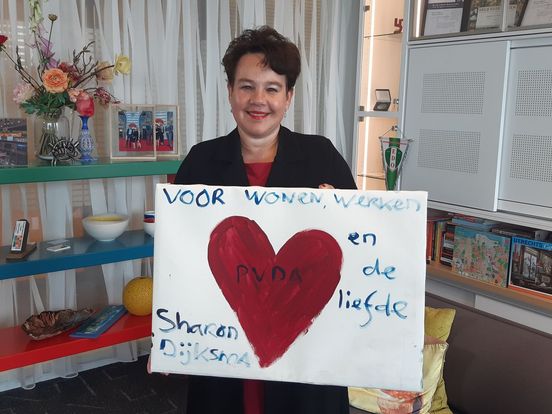 VOOR WONEN, WERKEN
en
de
liefde
PVDA
Sharon
Dijksma